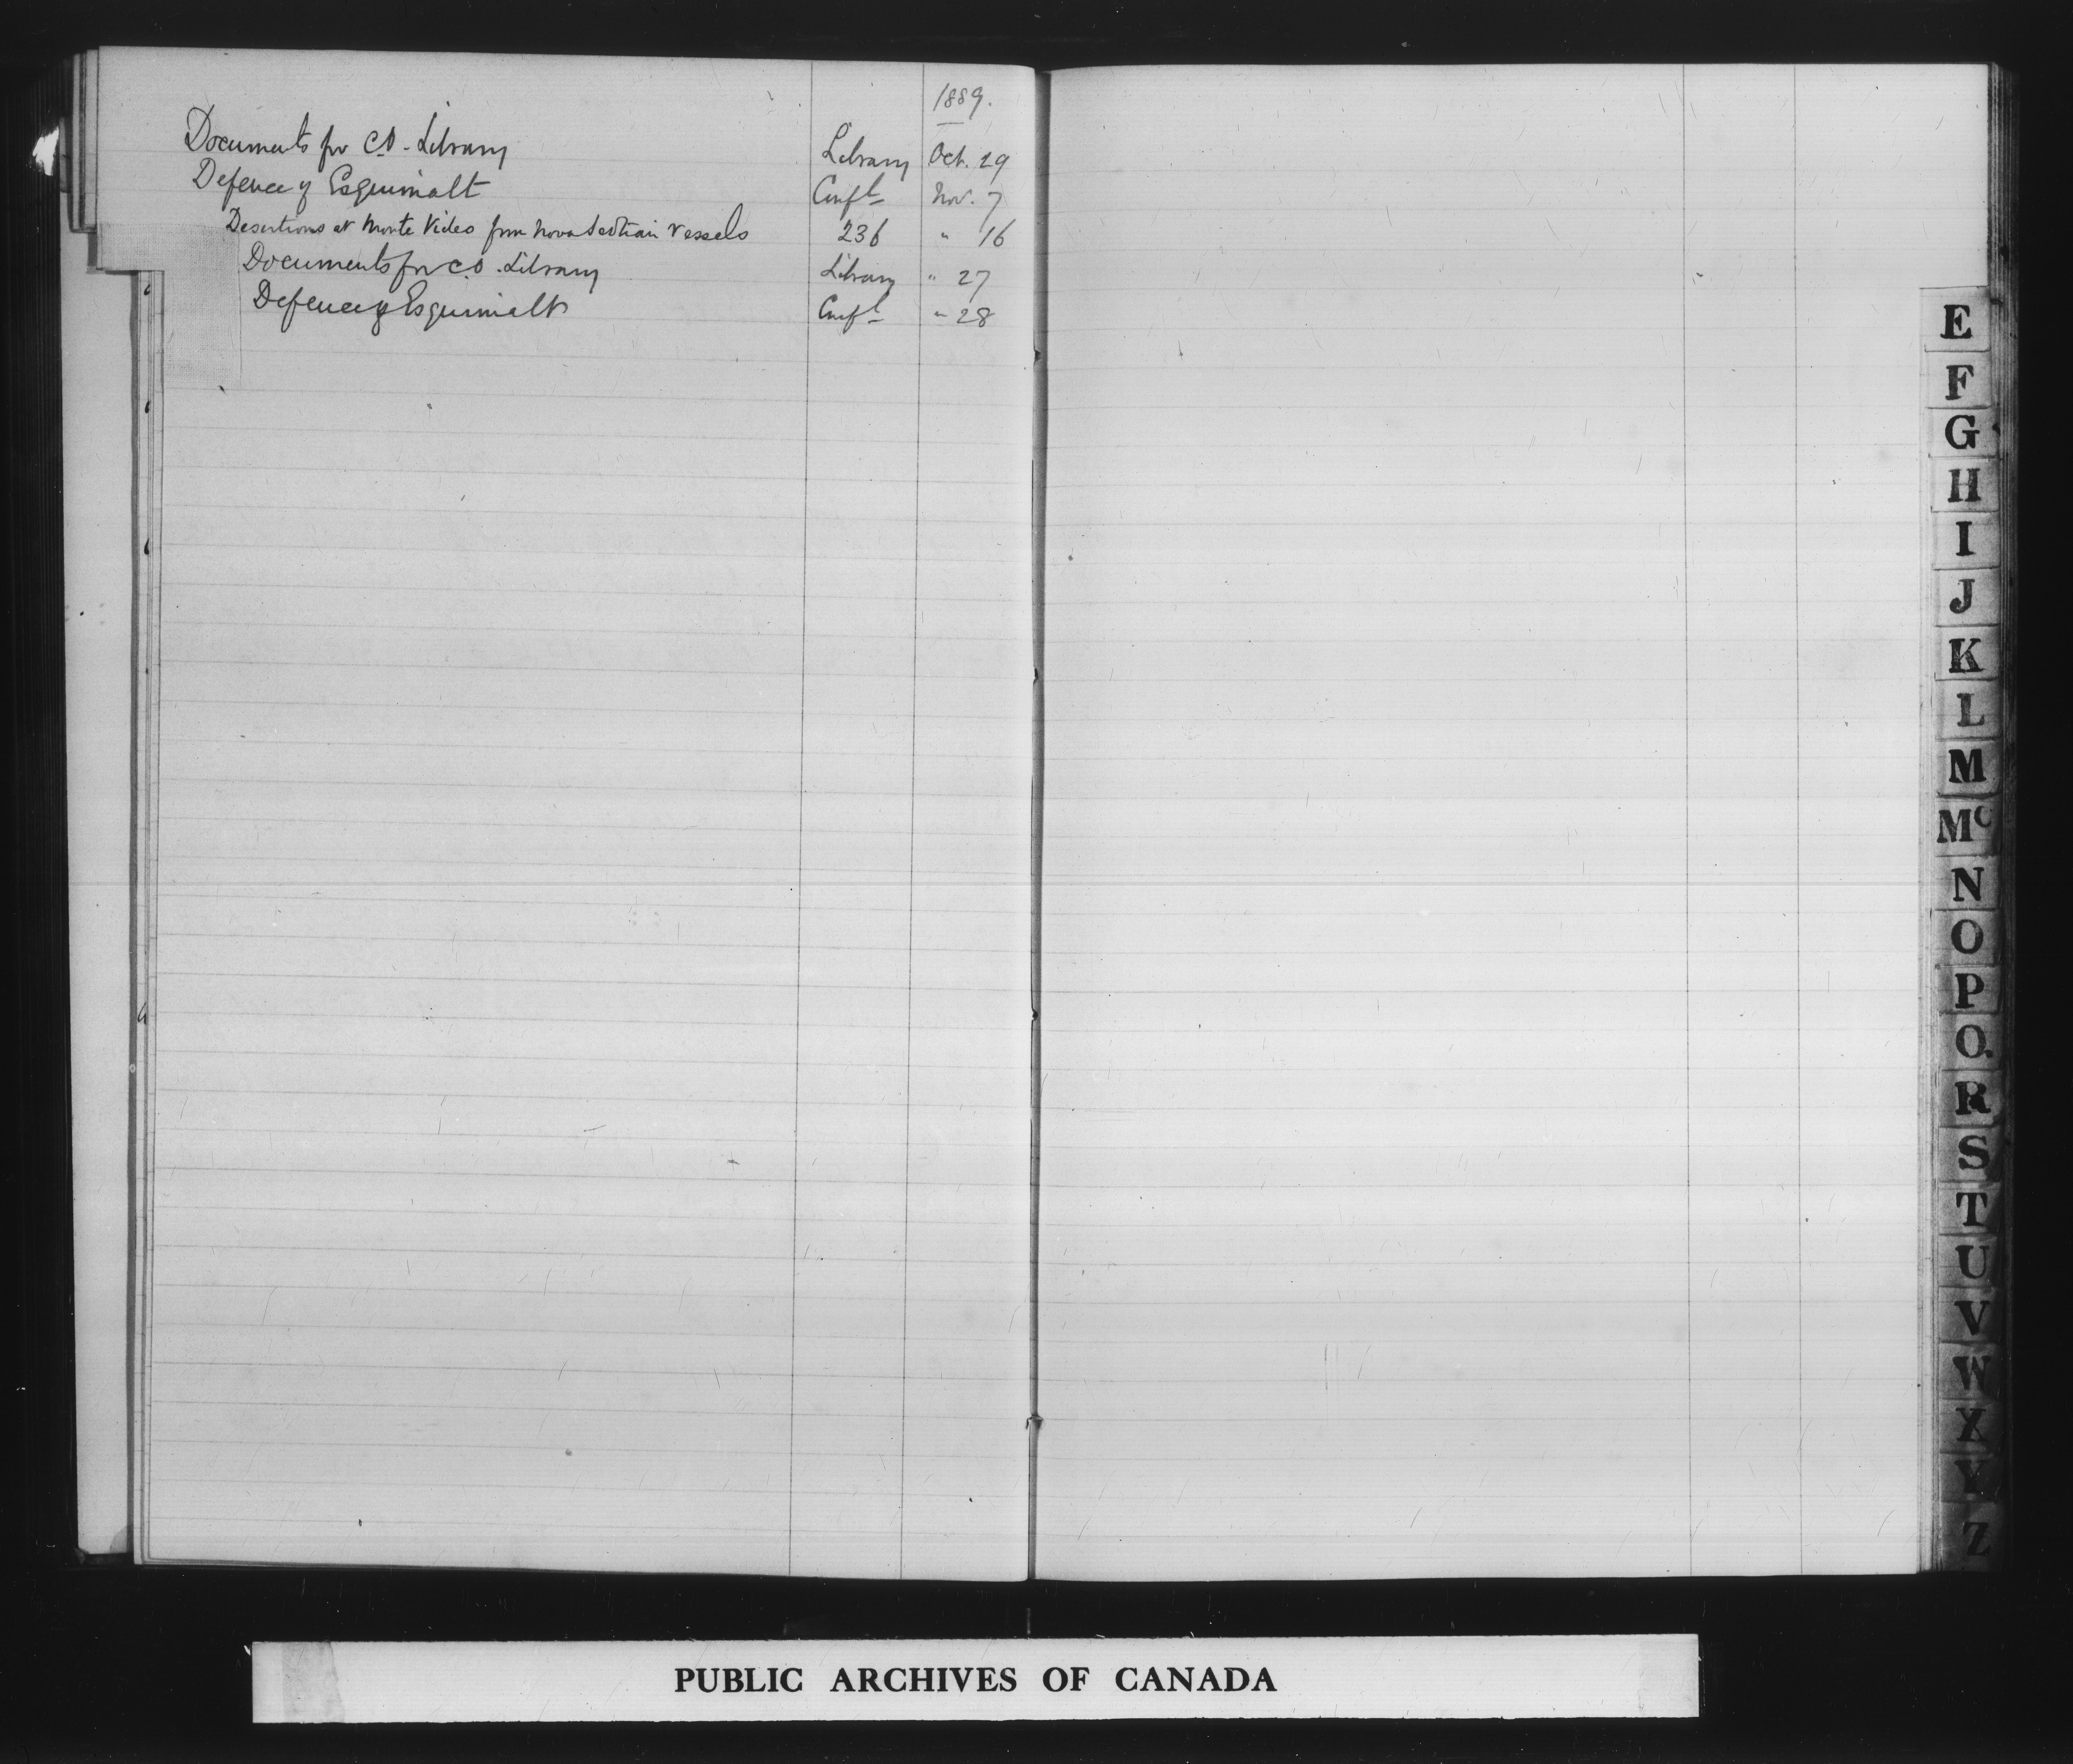 1889.
Documents for C.O. Library Library Oct. 29
Defence of Esquimalt Confl Nov. 7
Desertions at Monte Video from Nova Scotian Vessels 236 " 16
Documents for C.O. Library Library " 27
Defence of Esquimalt Confl " 28
E
F
G
H
I
J
K
L
M
Mc
N
O
P
Q
R
S
T
U
V
W
X
Y
Z
PUBLIC ARCHIVES OF CANADA